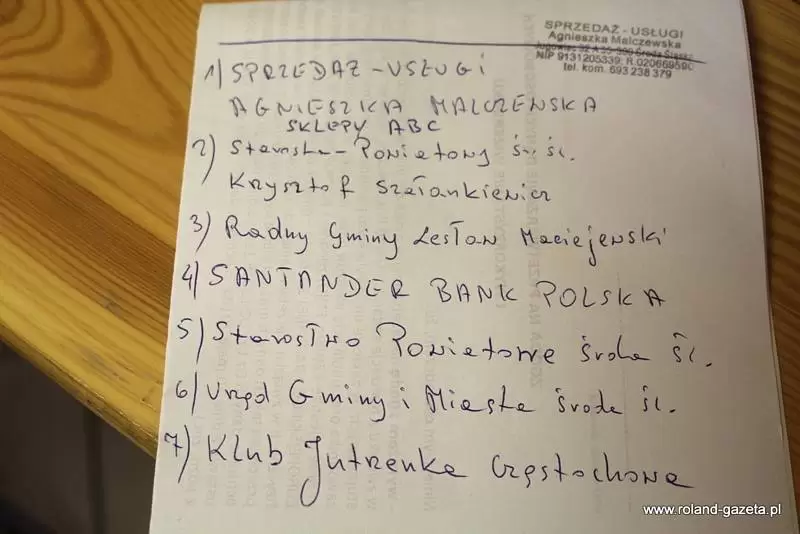 SPRZEDAŻ - USŁUGI
Agnieszka Malczewska
Jugowiec 32 A 55-300 Środa Śląska
NIP 9131205339; R.020669590
tel. kom. 693 238 379
1) SPRZEDAŻ - USŁUGI
AGNIESZKA MALCZEWSKA
SKLEPY ABC
2) Starosta - Powiatowy Śr. Śl.
Krzysztof Szałankiewicz
3) Radny Gminy Lesław Maciejewski
4) SANTANDER BANK POLSKA
5) Starostwo Powiatowe Środa Śl.
6) Urząd Gminy i Miasta Środa Śl.
7) Klub Jutrzenka Częstochowa
www.roland-gazeta.pl